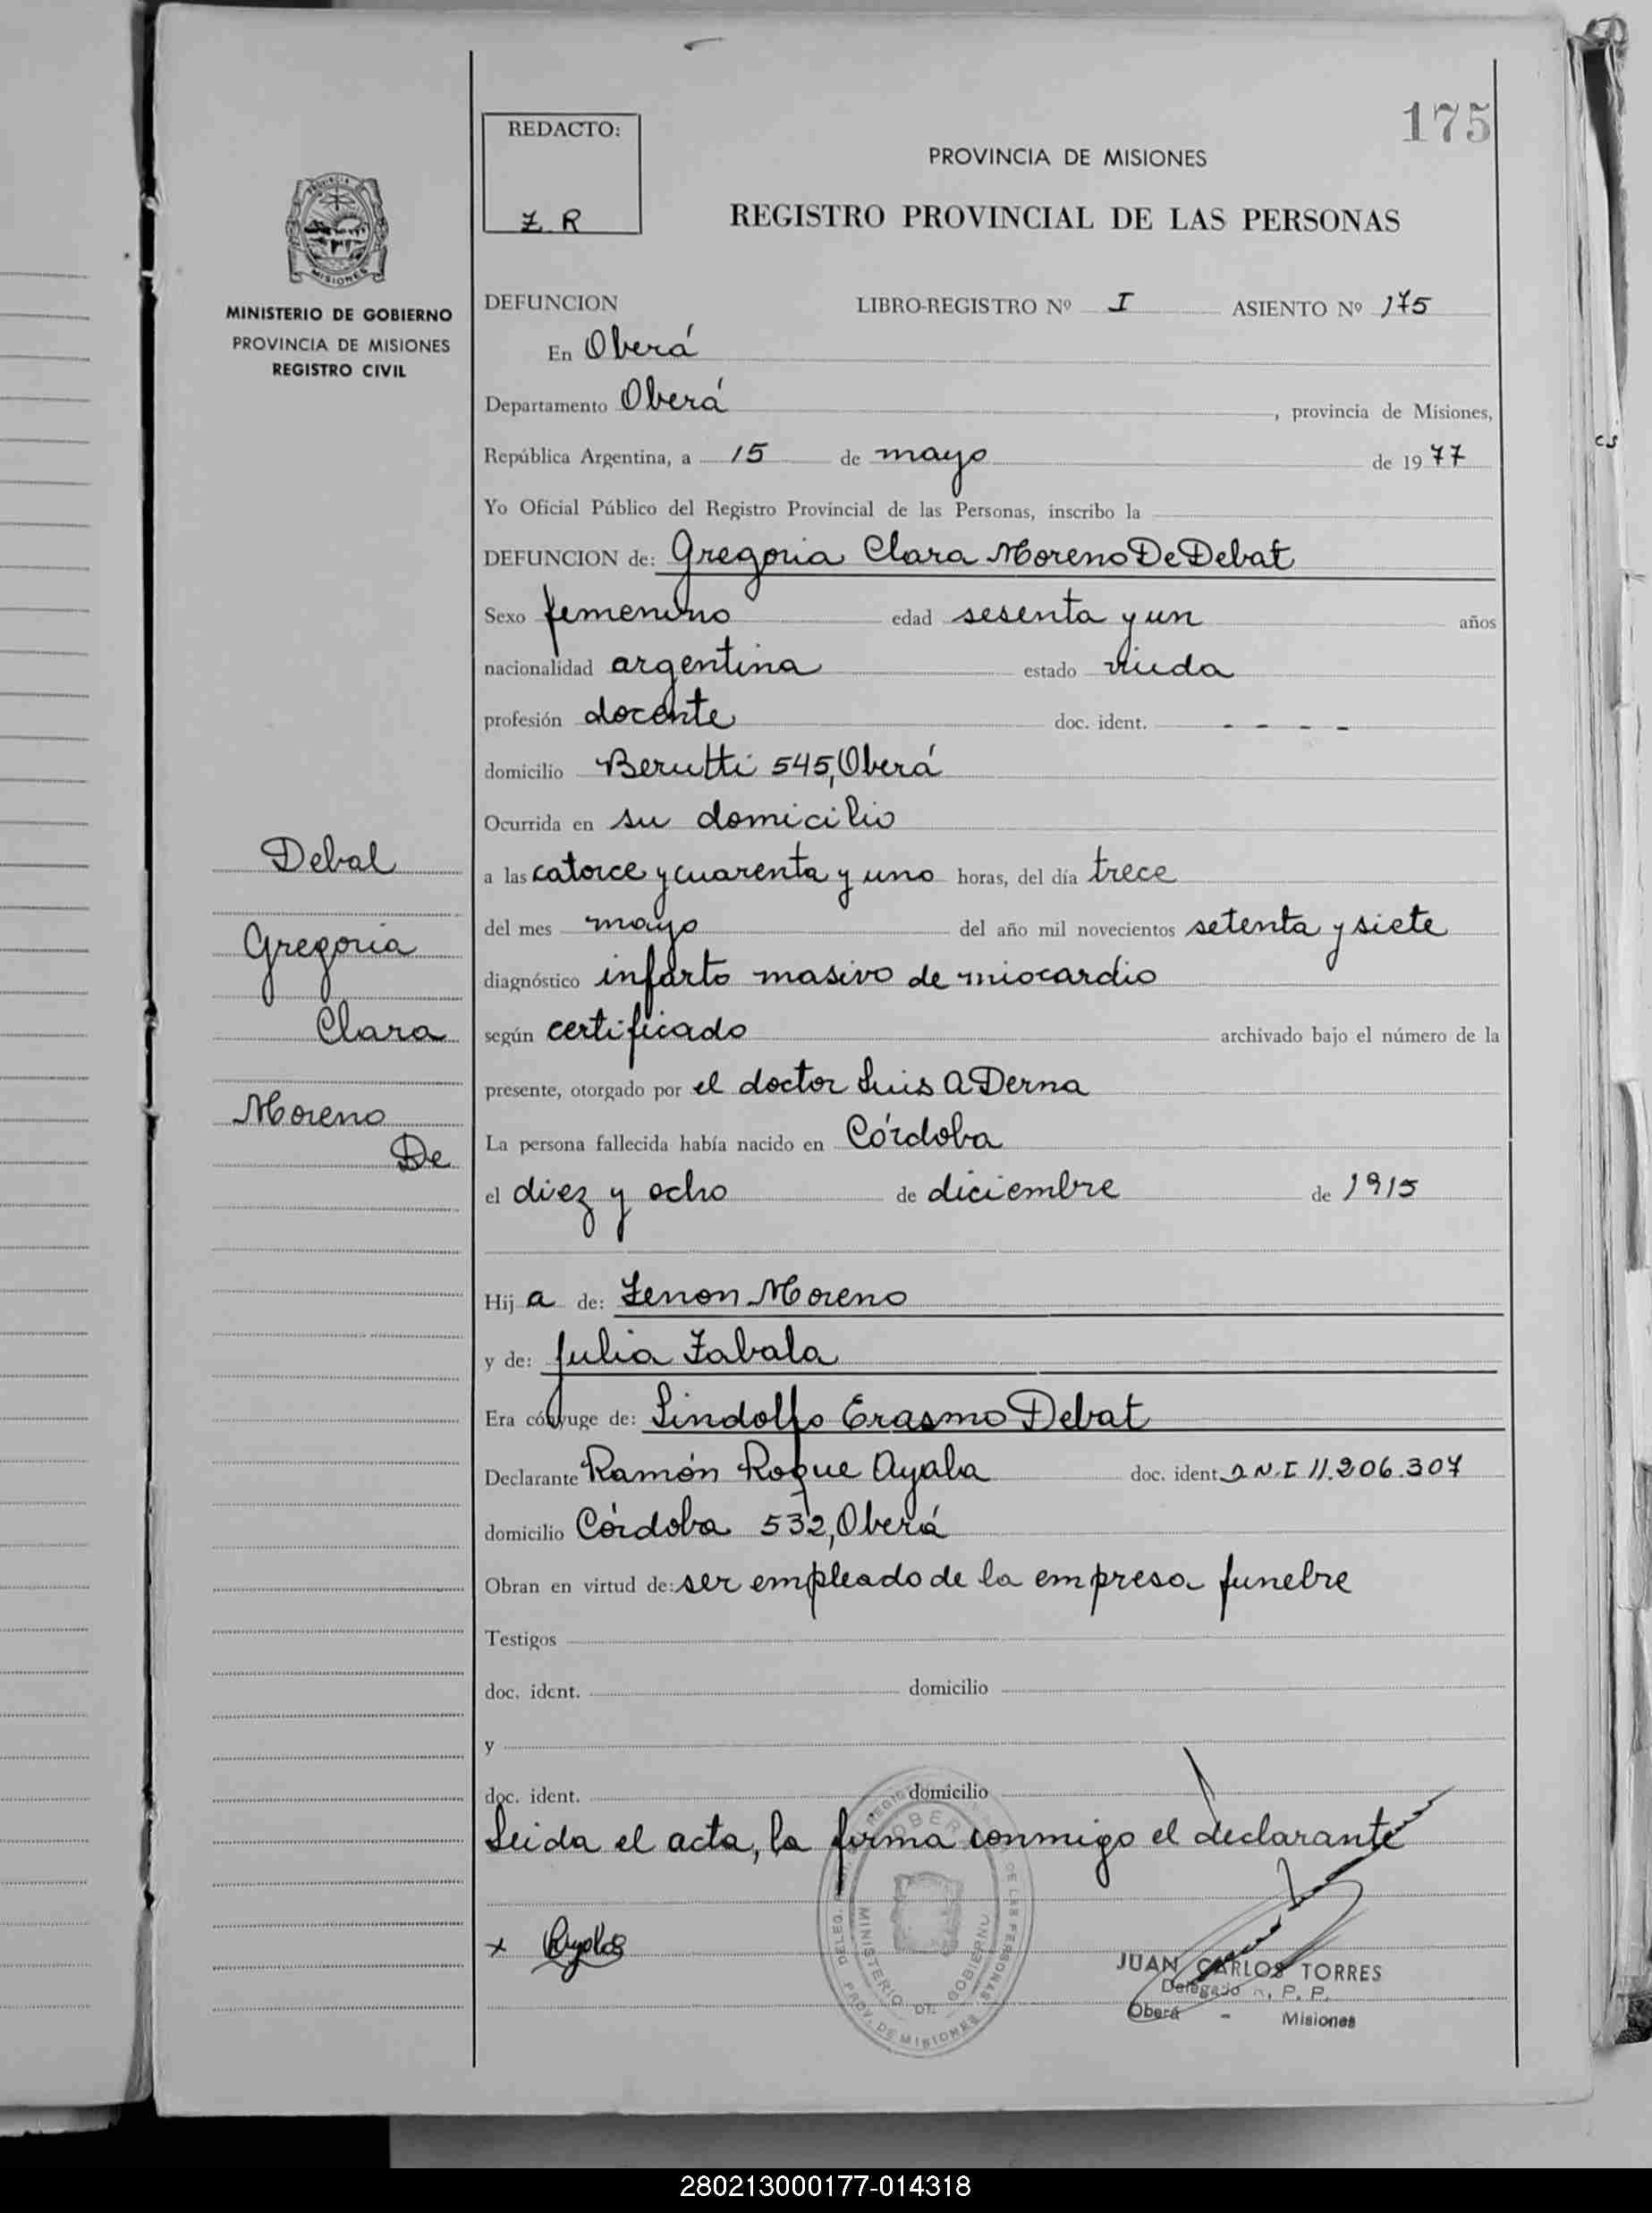 175
REDACTO:
Z. R
PROVINCIA DE MISIONES
REGISTRO PROVINCIAL DE LAS PERSONAS
MISIONES
MINISTERIO DE GOBIERNO
PROVINCIA DE MISIONES
REGISTRO CIVIL
DEFUNCION LIBRO-REGISTRO Nº I ASIENTO Nº 175
En Oberá
Departamento Oberá, provincia de Misiones,
República Argentina, a 15 de mayo de 1977
Yo Oficial Público del Registro Provincial de las Personas, inscribo la
DEFUNCION de: Gregoria Clara Moreno De Debat
Sexo femenino edad sesenta y un años
nacionalidad argentina estado viuda
profesión docente doc. ident. - - - -
domicilio Berutti 545, Oberá
Ocurrida en su domicilio
a las catorce y cuarenta y uno horas, del día trece
del mes mayo del año mil novecientos setenta y siete
diagnóstico infarto masivo de miocardio
según certificado archivado bajo el número de la
presente, otorgado por el doctor Luis A Derna
La persona fallecida había nacido en Córdoba
el diez y ocho de diciembre de 1915
Hija de: Zenon Moreno
y de: Julia Zabala
Era cónyuge de: Lindolfo Erasmo Debat
Declarante Ramón Roque Ayala doc. ident D N.I 11.206.307
domicilio Córdoba 532, Oberá
Obran en virtud de: ser empleado de la empresa funebre
Testigos
doc. ident. domicilio
y
doc. ident. domicilio
Leida el acta, la firma conmigo el declarante
Debal
Gregoria
Clara
Moreno
De
x
MINISTERIO DE GOBIERNO
PROV. DE MISIONES
JUAN CARLOS TORRES
Delegado R. P. P.
Oberá - Misiones
cs
280213000177-014318